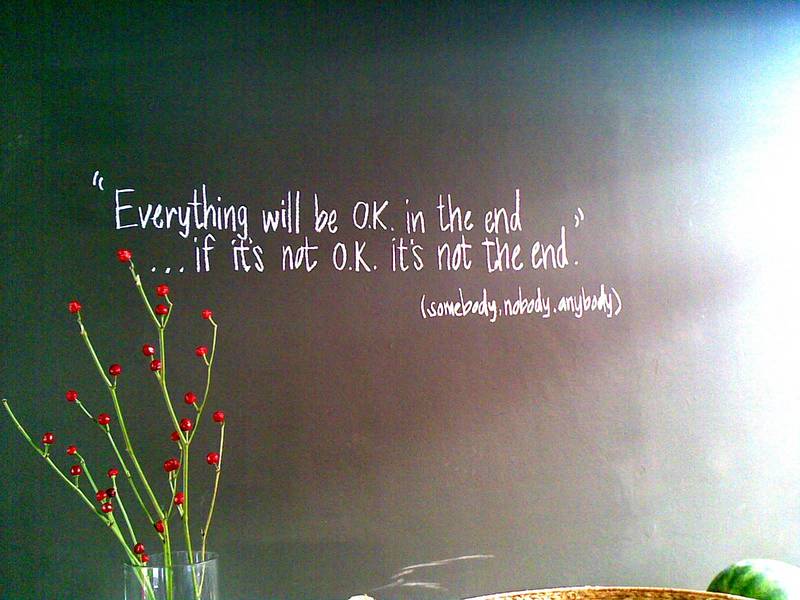 “Everything will be O.K. in the end
...if it's not O.K. it's not the end.”
(somebody, nobody, anybody)